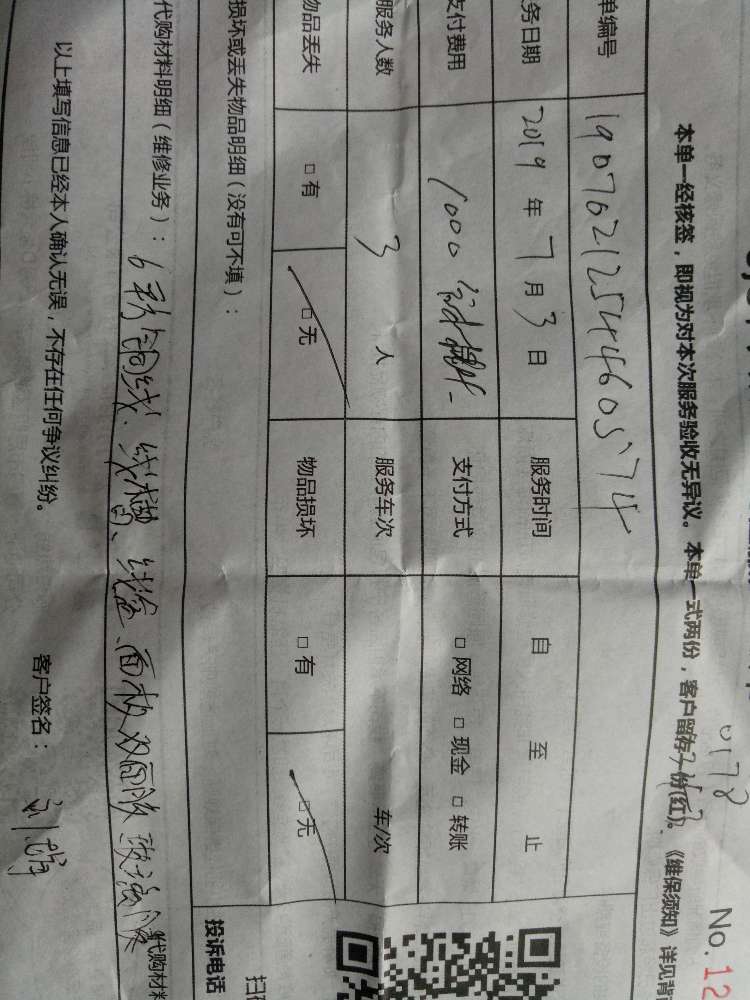 0178
No.12
本单一经核签，即视为对本次服务验收无异议。本单一式两份，客户留存一份(红)。《维保须知》详见背
单编号 1907021254460574
务日期 2019 年 7 月 3 日 服务时间 自 至 止
支付费用 1000 支付方式 □ 网络 □ 现金 □ 转账
服务人数 3 人 服务车次 车/次
物品丢失 □ 有 □ 无 物品损坏 □ 有 □ 无
损坏或丢失物品明细（没有可不填）：
代购材料明细（维修业务）：6 铜线、线槽、线盒、面板 双面胶 玻璃胶 代购材料
以上填写信息已经本人确认无误，不存在任何争议纠纷。 客户签名：
投诉电话
扫